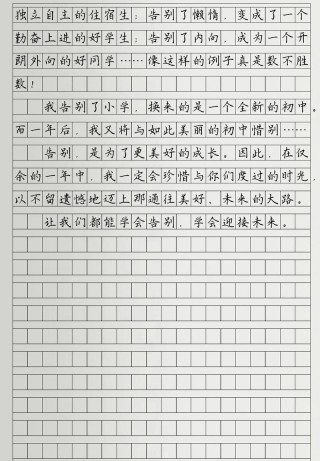 独立自主的住宿生；告别了懒惰，变成了一个
勤奋上进的好学生；告别了内向，成为一个开
朗外向的好同学……像这样的例子真是数不胜
数！
我告别了小学，换来的是一个全新的初中。
而一年后，我又将与如此美丽的初中惜别……
告别，是为了更美好的成长。因此，在仅
余的一年中，我一定会珍惜与你们度过的时光，
以不留遗憾地迈上那通往美好、未来的大路。
让我们都能学会告别，学会迎接未来。